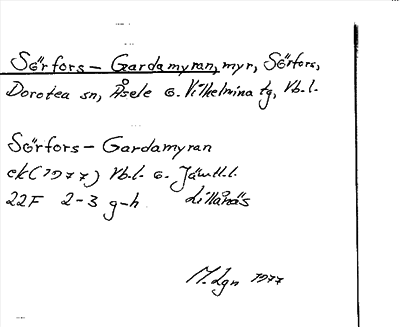 Sörfors – Gardamyran, myr, Sörfors,
Dorotea sn, Åsele o. Vilhelmina tg, Vb.l.
Sörfors – Gardamyran
ek (1977) Vb.l. o. Jämtl.l.
22F 2-3 g-h Lillånäs
M. Lgn 1977